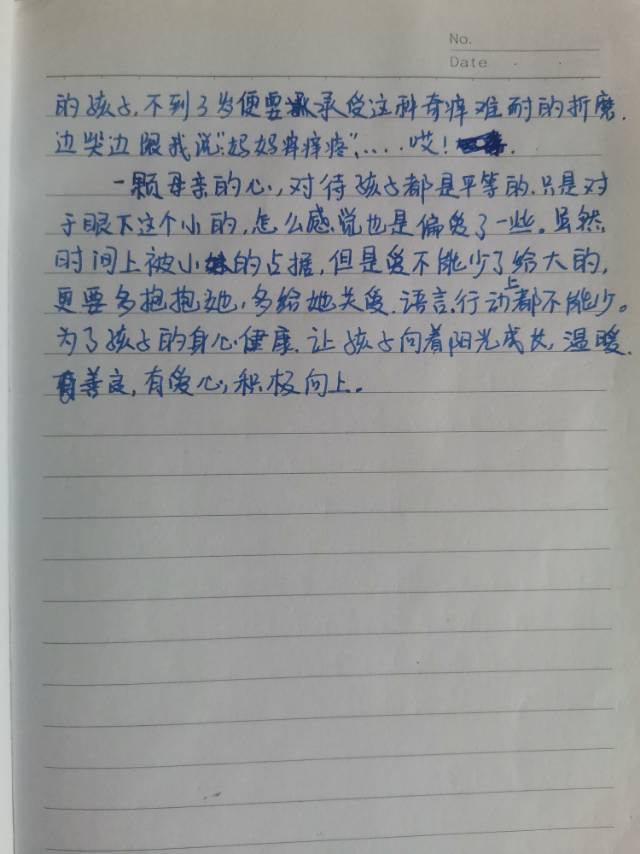 No.
Date
的孩子,不到3岁便要承受这种奇痒难耐的折磨.
边哭边跟我说:"妈妈痒痒疼",....哎!
一颗母亲的心,对待孩子都是平等的.只是对
于眼下这个小的,怎么感觉也是偏爱了一些。虽然
时间上被小的占据,但是爱不能少了给大的,
更要多抱抱她,多给她关爱.语言、行动上都不能少。
为了孩子的身心健康.让孩子向着阳光成长,温暖.
善良,有爱心,积极向上。